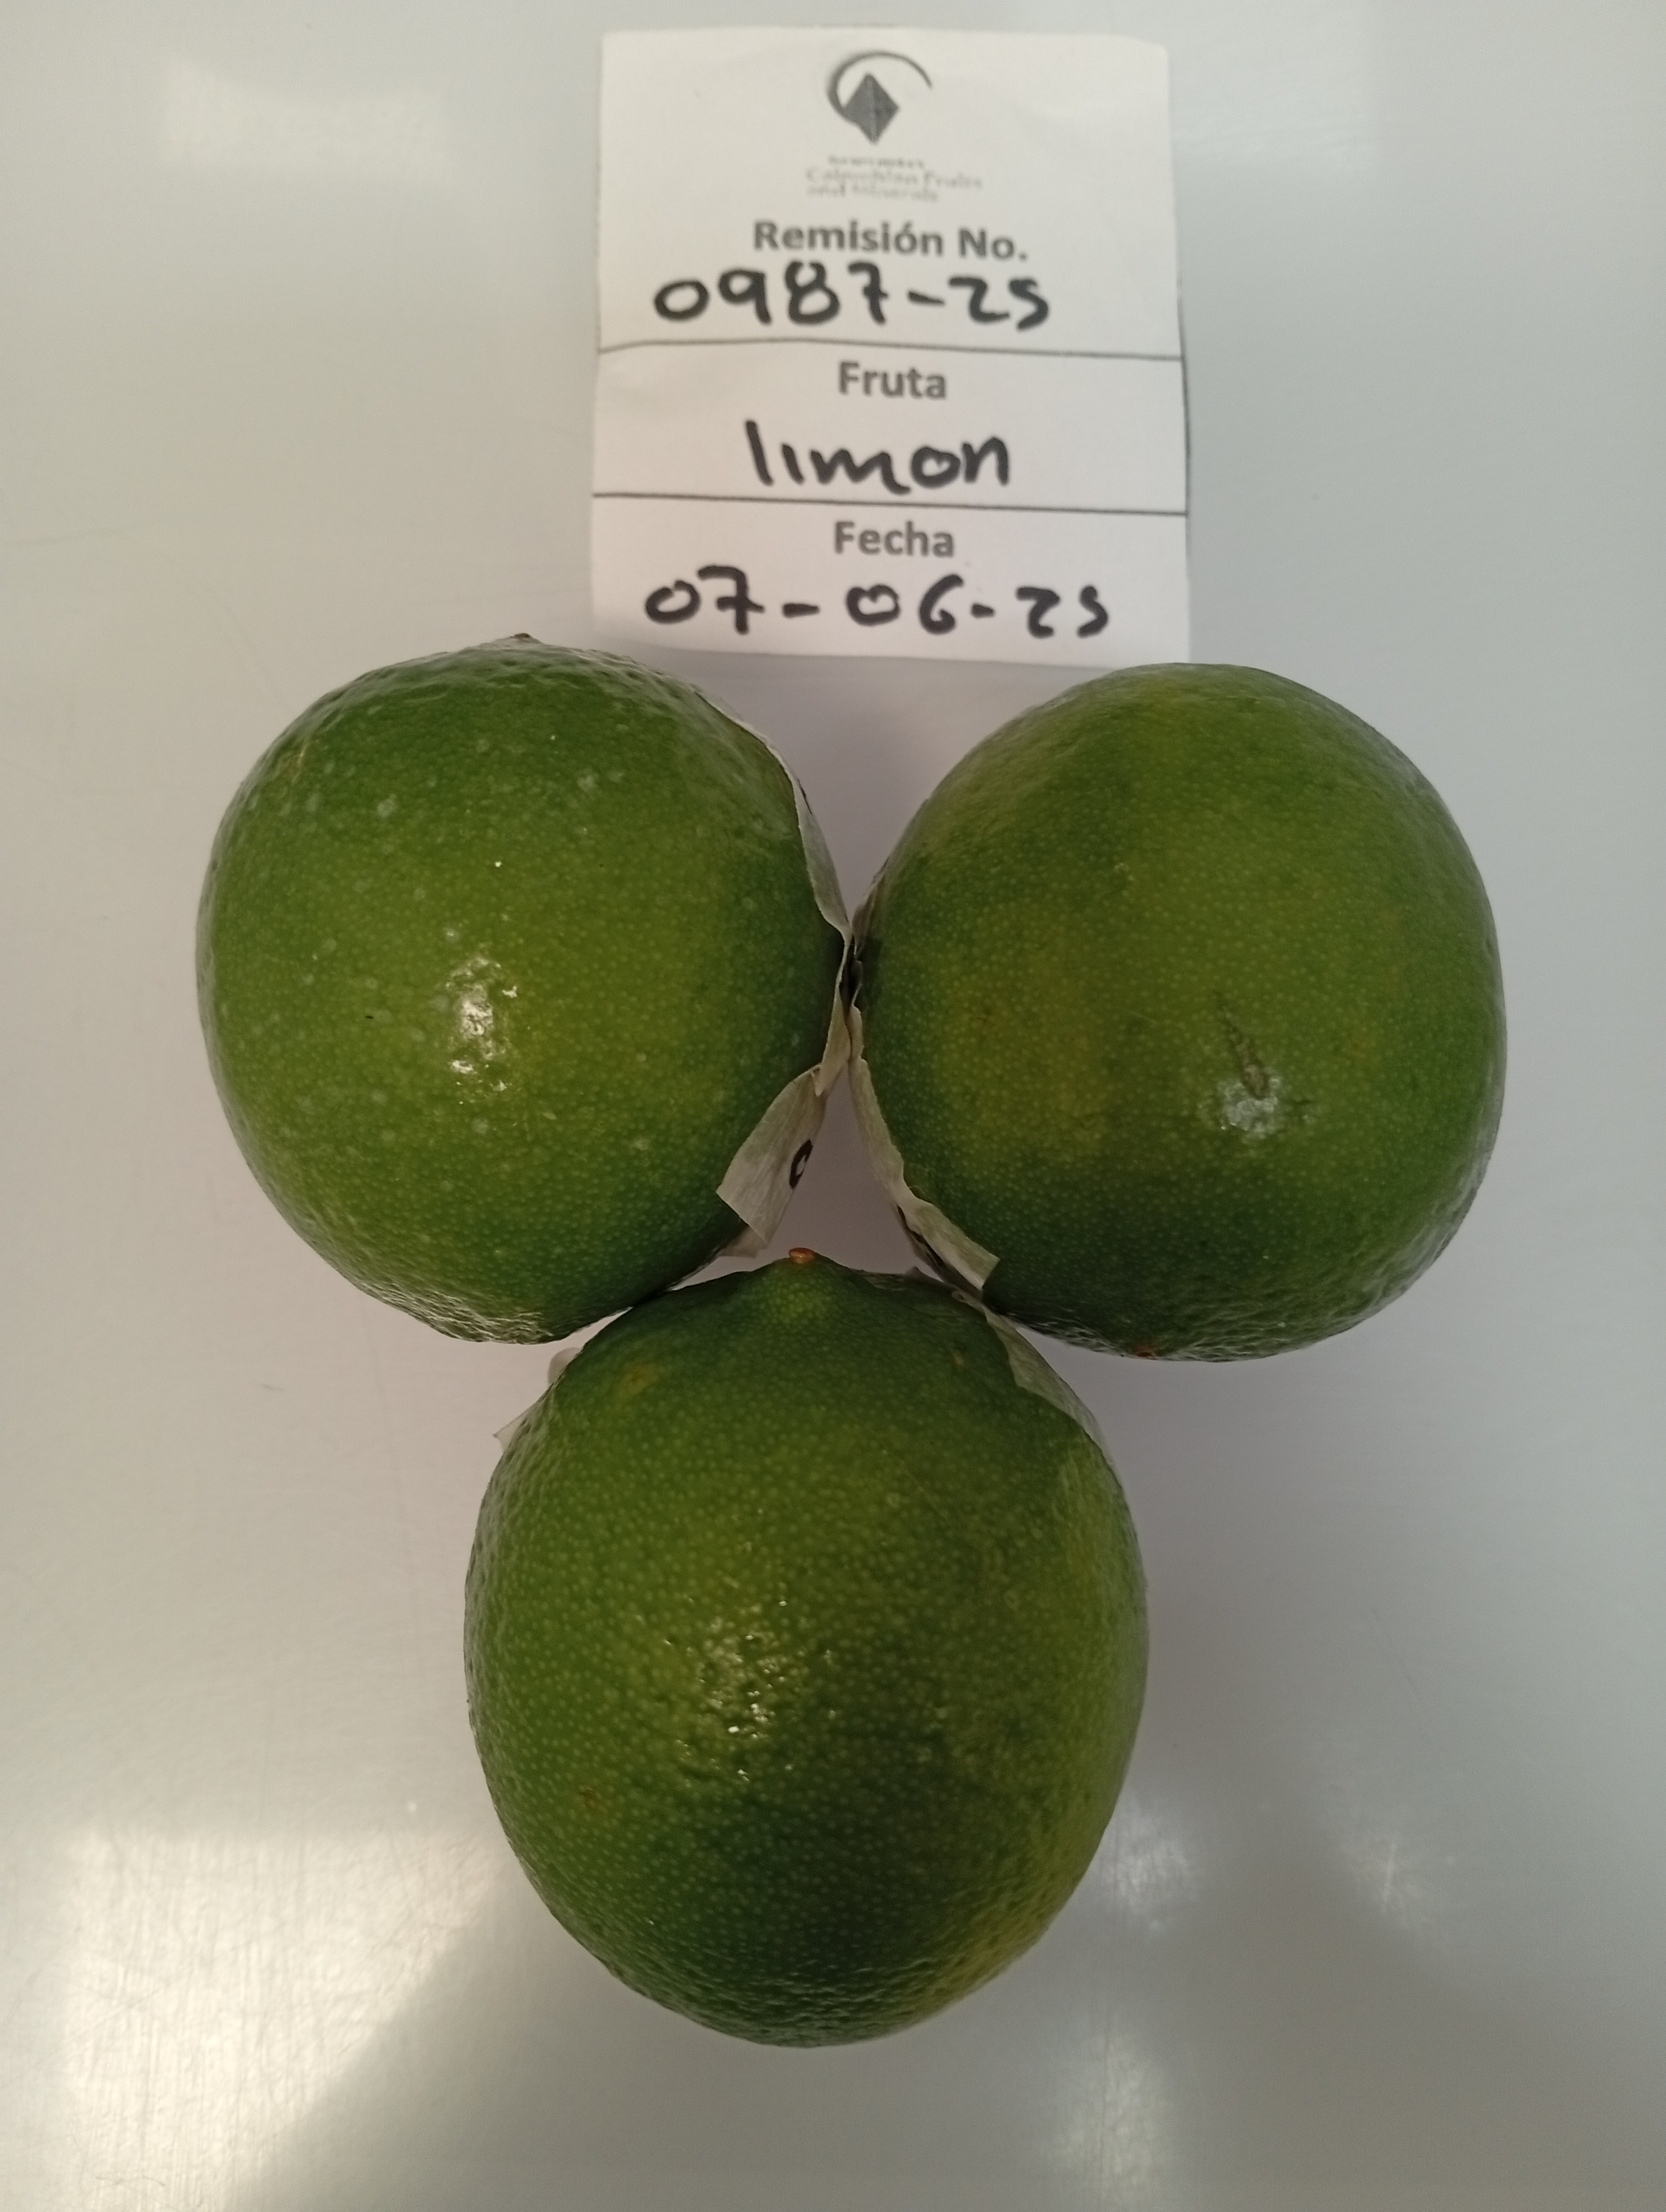 Colombian Fruits
and Minerals
Remisión No.
0987-25
Fruta
limon
Fecha
07-06-25